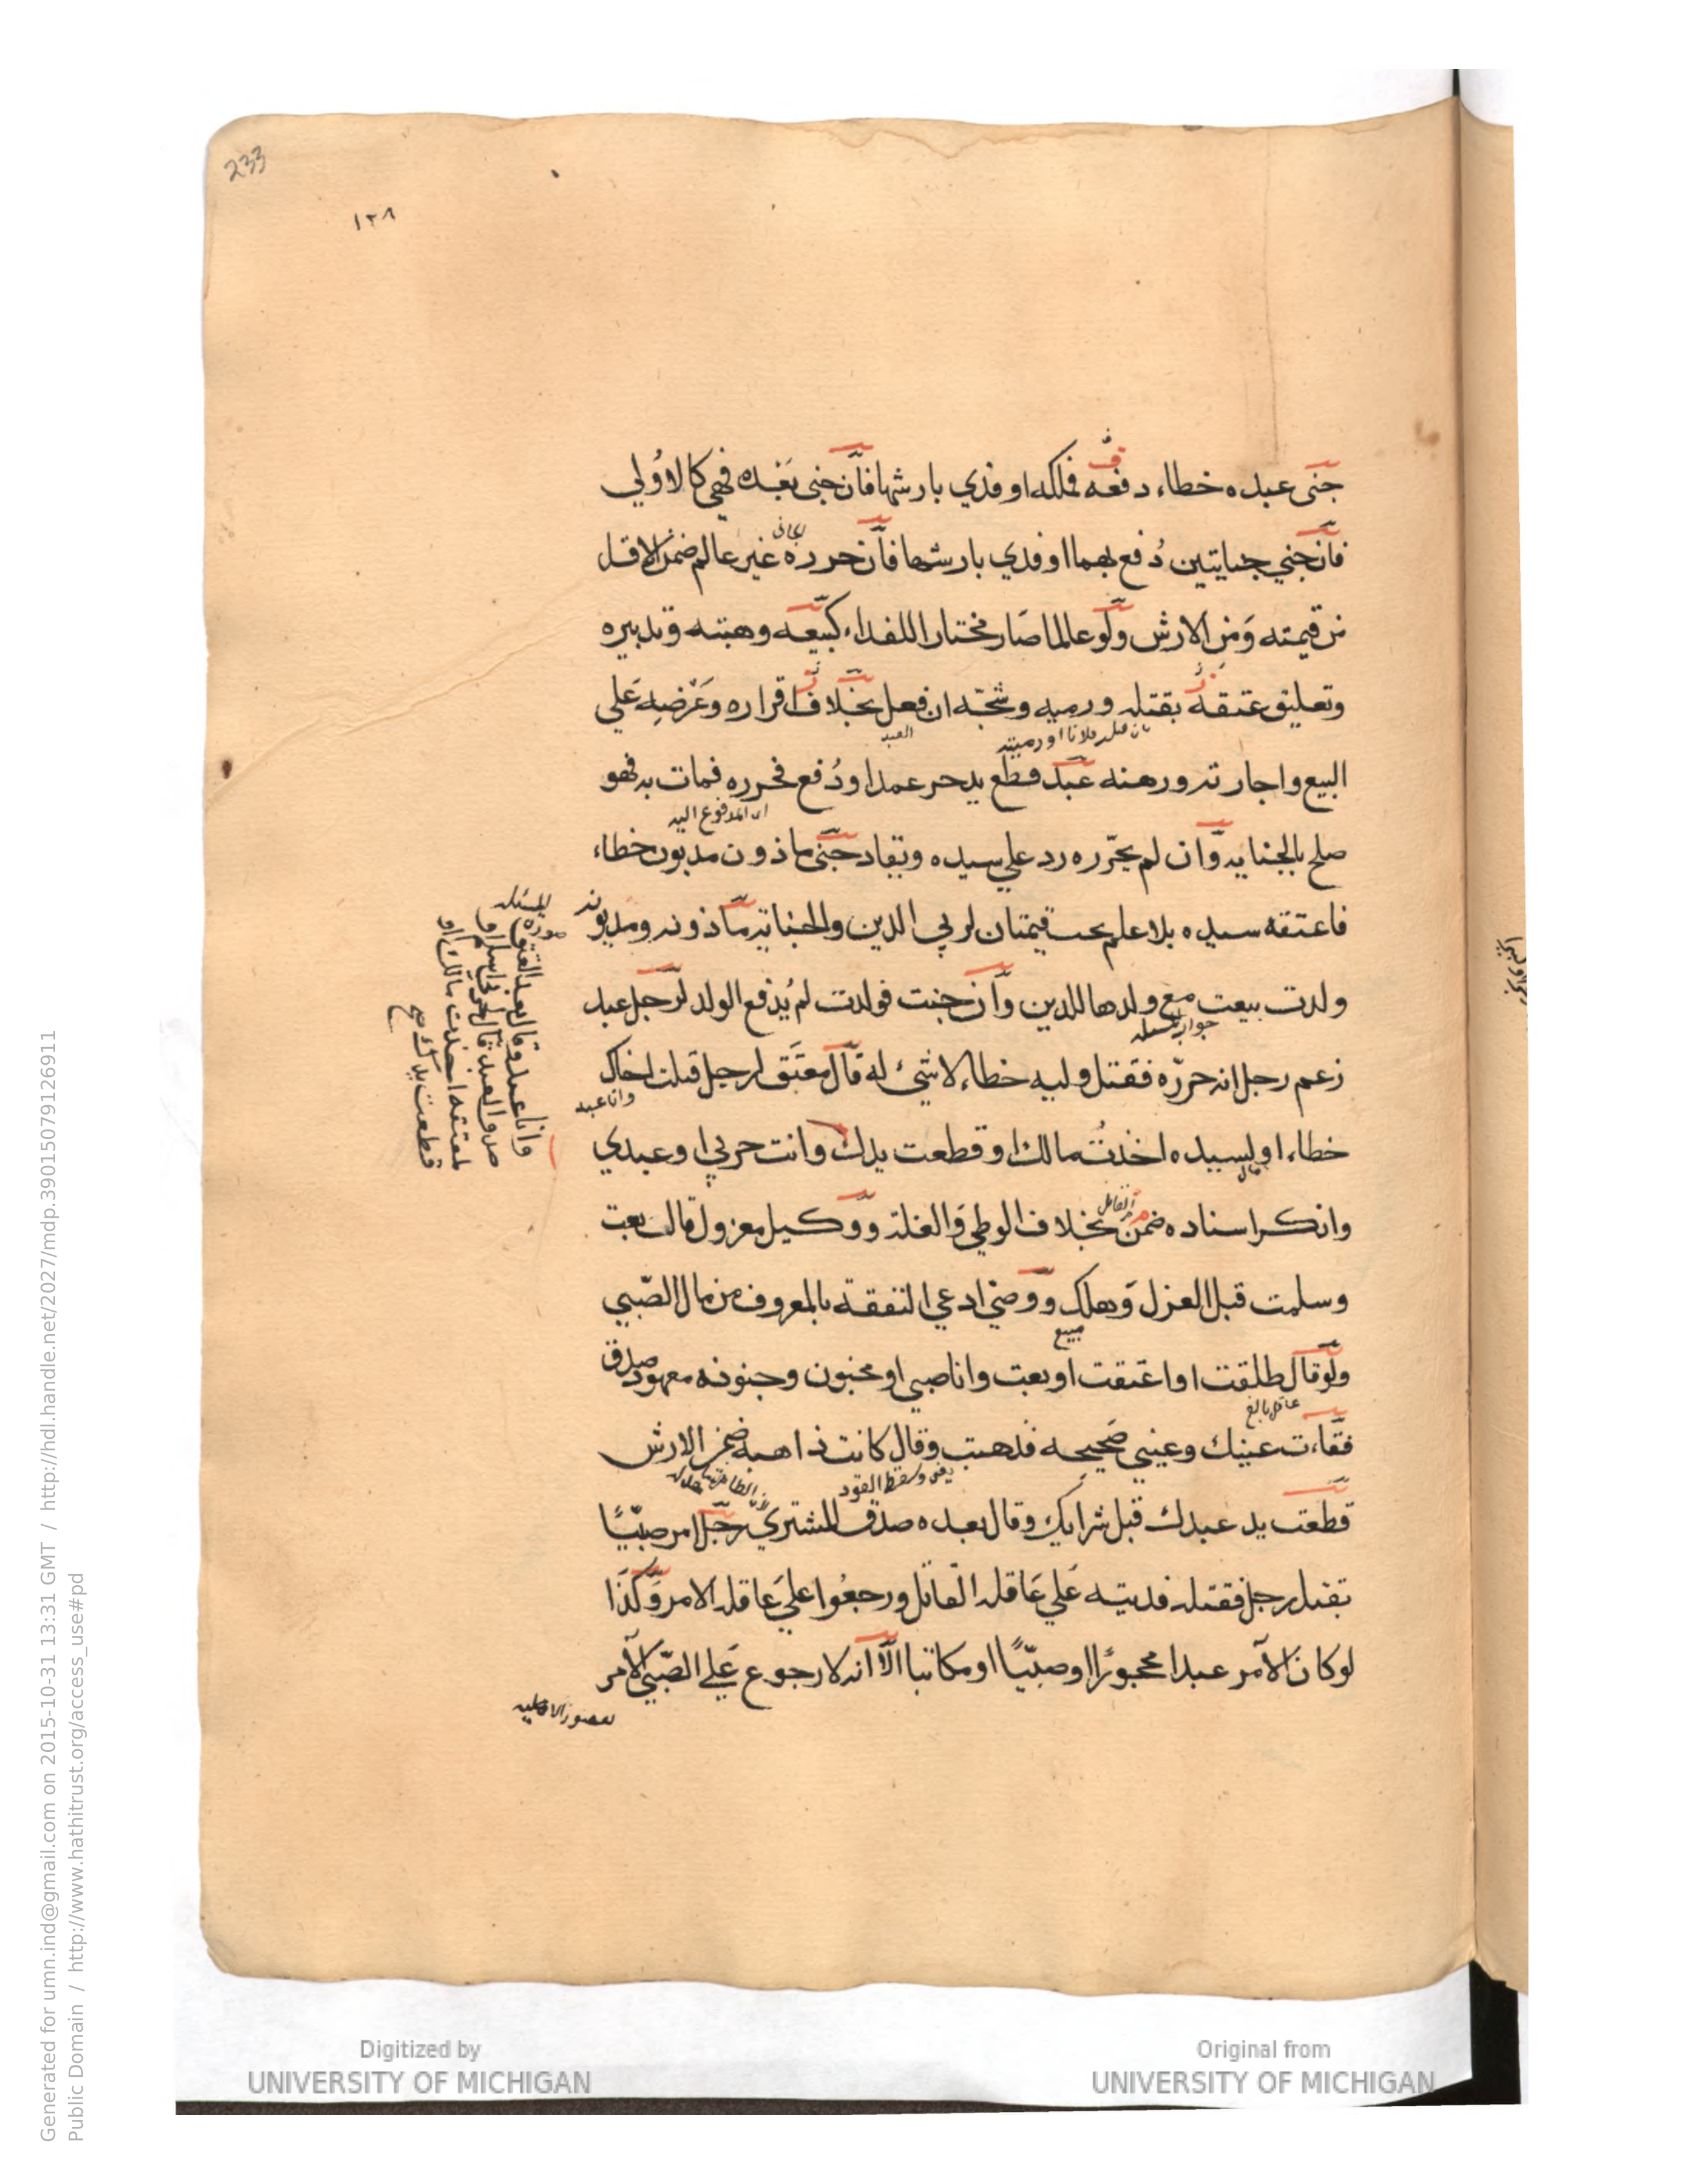 233
١٢٨
جنى عبده خطاء دفعه فملكه او فدي بارشها فان جنى بعده فهي كالاولي
فان جني جنايتين دُفع بهما او فدي بارشها فان حرره غير عالم ضمن الاقل
من قيمته ومن الارش ولو عالما صار مختارا للفداء كبيعه وهبته وتدبيره
وتعليق عتقه بقتله ورميه وشجّه ان فعل بخلاف اقراره وعرضه علي
العبد
البيع واجارته ورهنه عبد قطع يد حر عمدا ودُفع فحرره فمات به فهو
اى المدفوع اليه
صلح بالجنايه وان لم يحرّره رد علي سيده ويقاد جنى ماذون مديون خطاء
فاعتقه سيده بلا علم يجب قيمتان لربي الدين والجناية ماذونه ومديونه
ولدت بيعت مع ولدها للدين وان جنت فولدت لم يُدفع الولد لرجل عبد
زعم رجل انه حررّه فقتل وليه خطاء لا شئ له قال معتَق لرجل قتلت اخاك
وانا عبد
خطاء او لسيده اخذتُ مالك او قطعت يدك وانت حربي او عبدي
وانكر اسناده ضمن بخلاف الوطي والغلة ووكيل معزول قال بعت
وسلمت قبل العزل وهلك ووصي ادعي النفقة بالمعروف من مال الصّبي
مبيع
ولو قال طلقت او اعتقت او بعت وانا صبي او مجنون وجنونه معهود صدق
عاقل بالغ
فقاءت عينك وعيني صحيحه فذهبت وقال كانت ذاهبة ضمن الارش
يعنى وسقط القود
قطعت يد عبدك قبل شرايك وقال بعده صدق المشتري رجل امر صبيًّا
بقتل رجل فقتله فديته علي عاقلة القاتل ورجعُوا علي عاقلة الامر وكذا
لو كان الآمر عبدا محجورًا او صبيًّا او مكاتبا الا انه لا رجوع علي الصّبي الآمر
صورة المسئله
Generated for umn.ind@gmail.com on 2015-10-31 13:31 GMT / http://hdl.handle.net/2027/mdp.39015079126911
Public Domain / http://www.hathitrust.org/access_use#pd
Digitized by
UNIVERSITY OF MICHIGAN
Original from
UNIVERSITY OF MICHIGAN